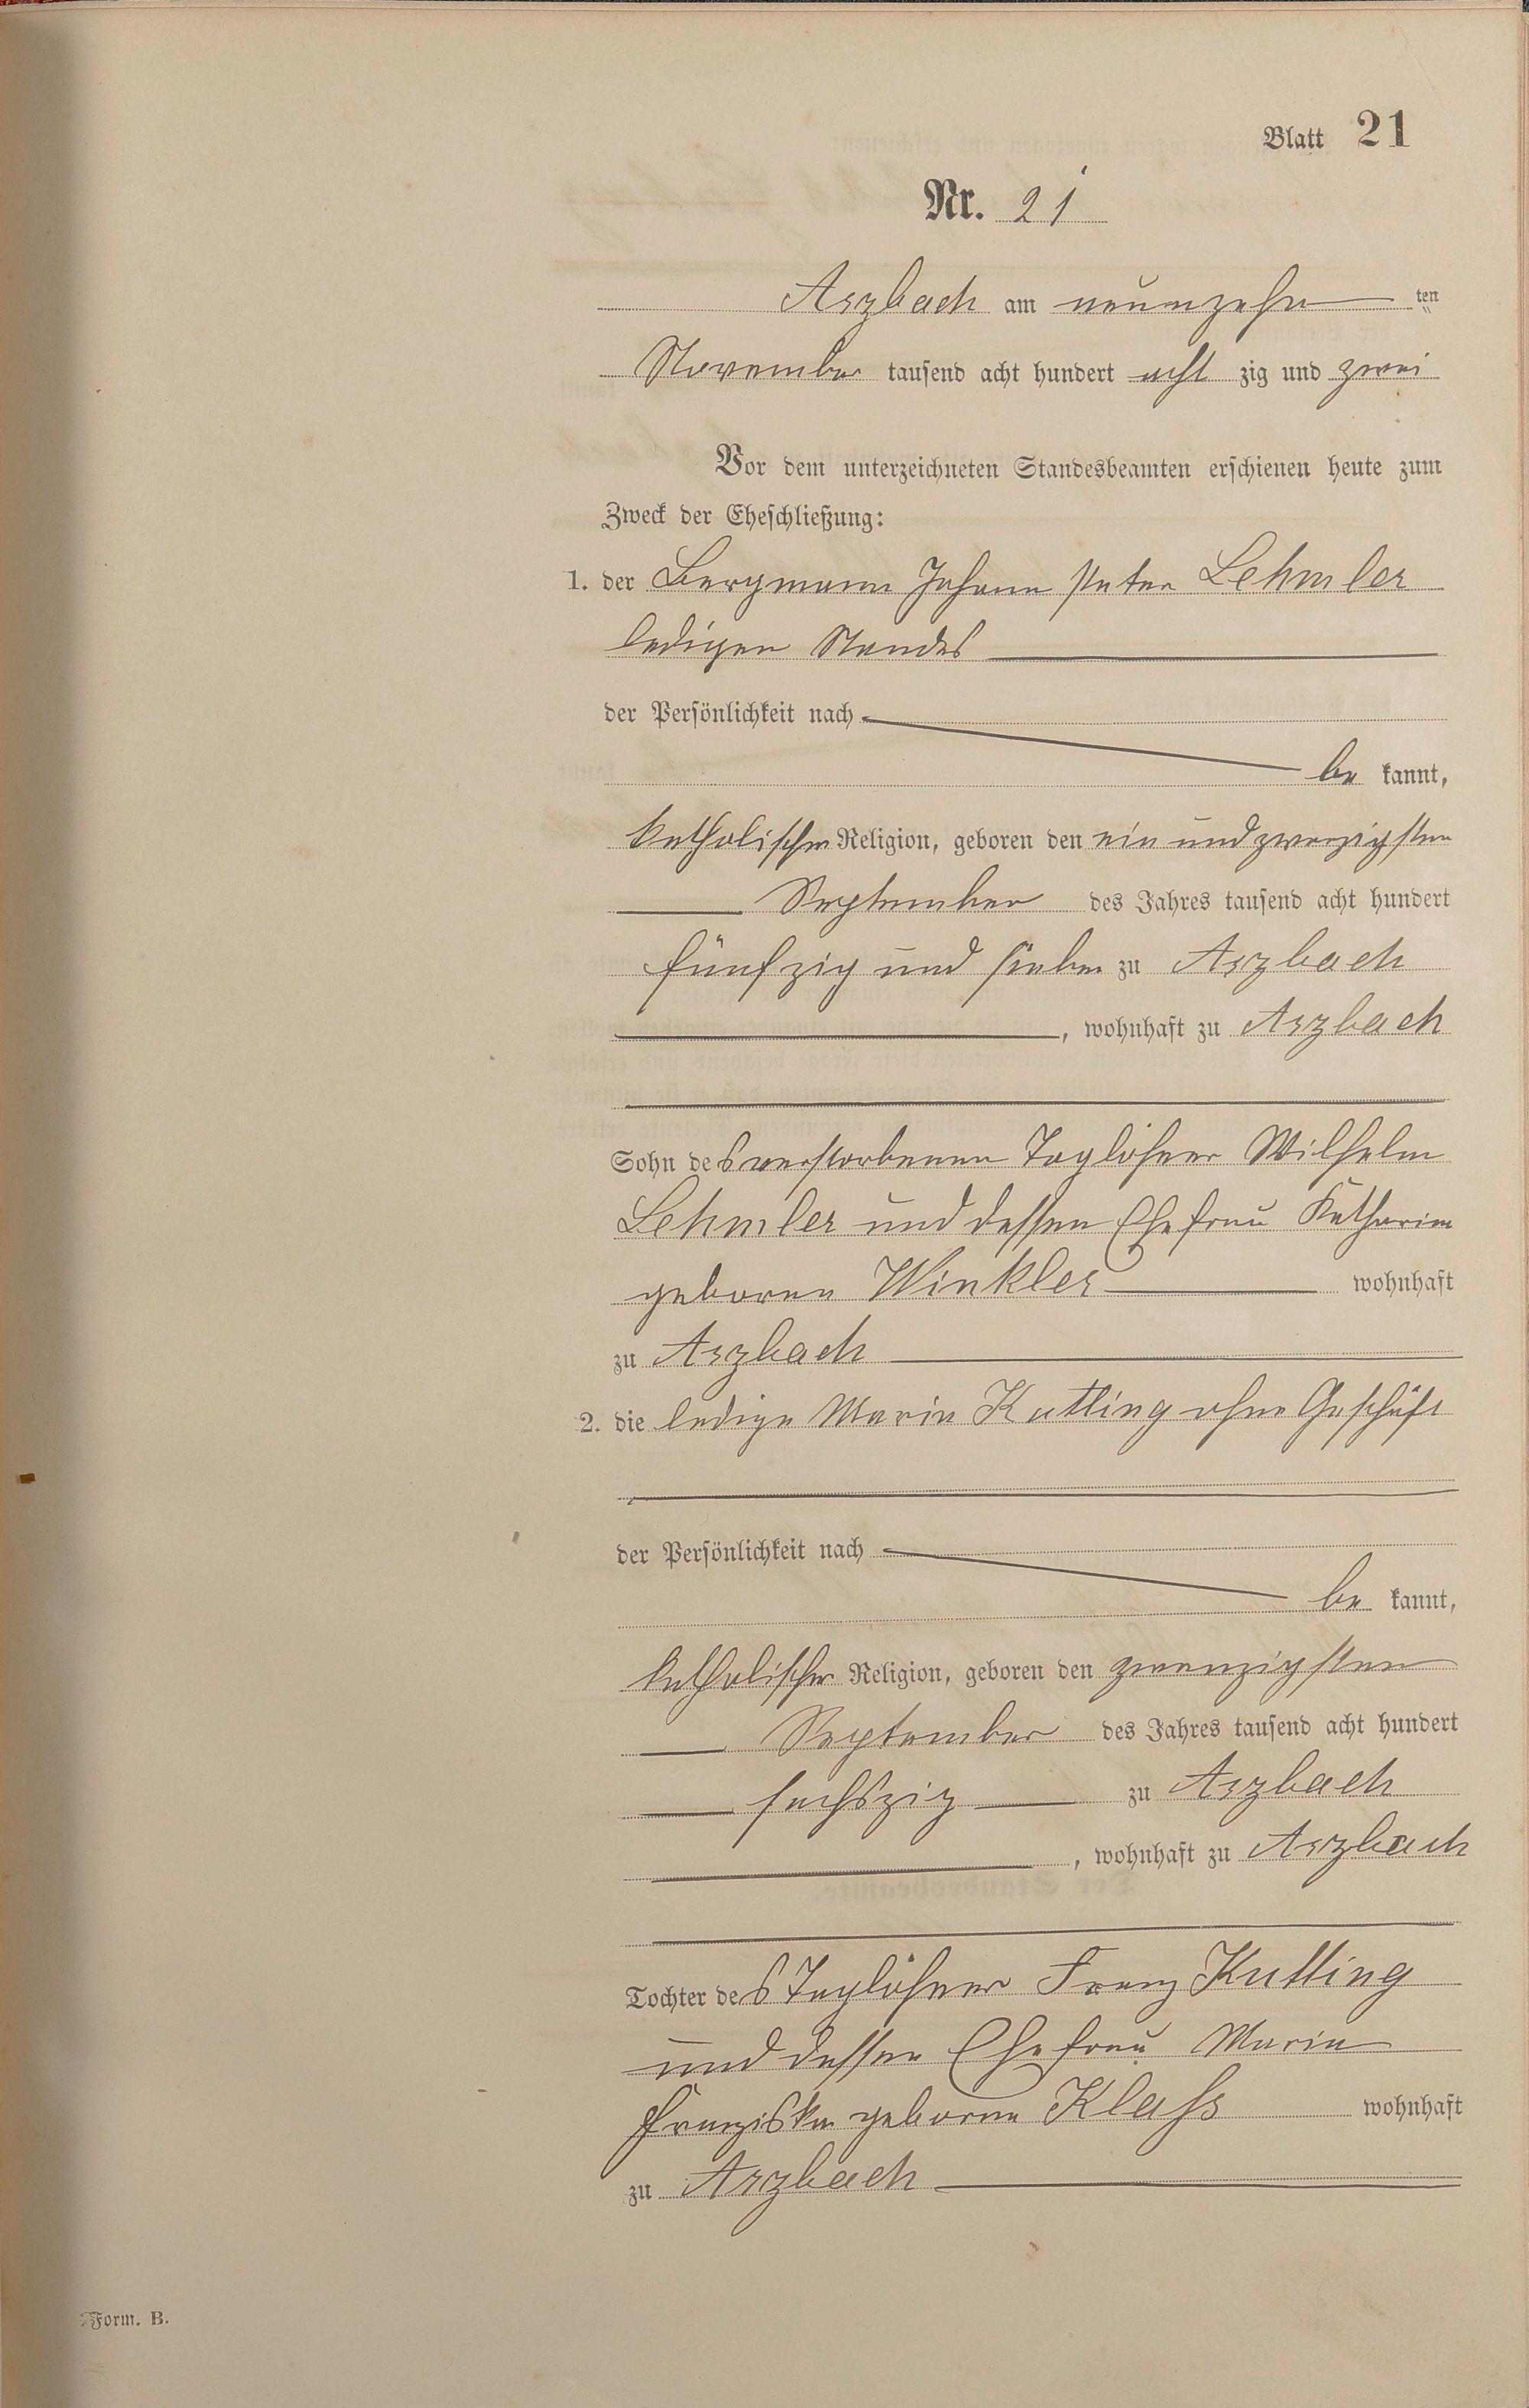 Blatt 21
Nr. 21
Arzbach am neunzehn ten
November tausend acht hundert acht zig und zwei
Vor dem unterzeichneten Standesbeamten erschienen heute zum
Zweck der Eheschließung:
1. der Bergmann Johann Peter Lehmler
ledigen Standes
der Persönlichkeit nach
be kannt,
katholischer Religion, geboren den ein und zwanzigsten
September des Jahres tausend acht hundert
fünfzig und sieben zu Arzbach
, wohnhaft zu Arzbach
Sohn des verstorbenen Taglöhner Wilhelm
Lehmler und dessen Ehefrau Katharina
geborne Winkler wohnhaft
zu Arzbach
2. die ledige Maria Kutling ohne Geschäft
der Persönlichkeit nach
be kannt,
katholischer Religion, geboren den zwanzigsten
September des Jahres tausend acht hundert
sechszig zu Arzbach
, wohnhaft zu Arzbach
Tochter des Taglöhner Franz Kutling
und dessen Ehefrau Maria
Franziska geborne Klaß wohnhaft
zu Arzbach
Form. B.